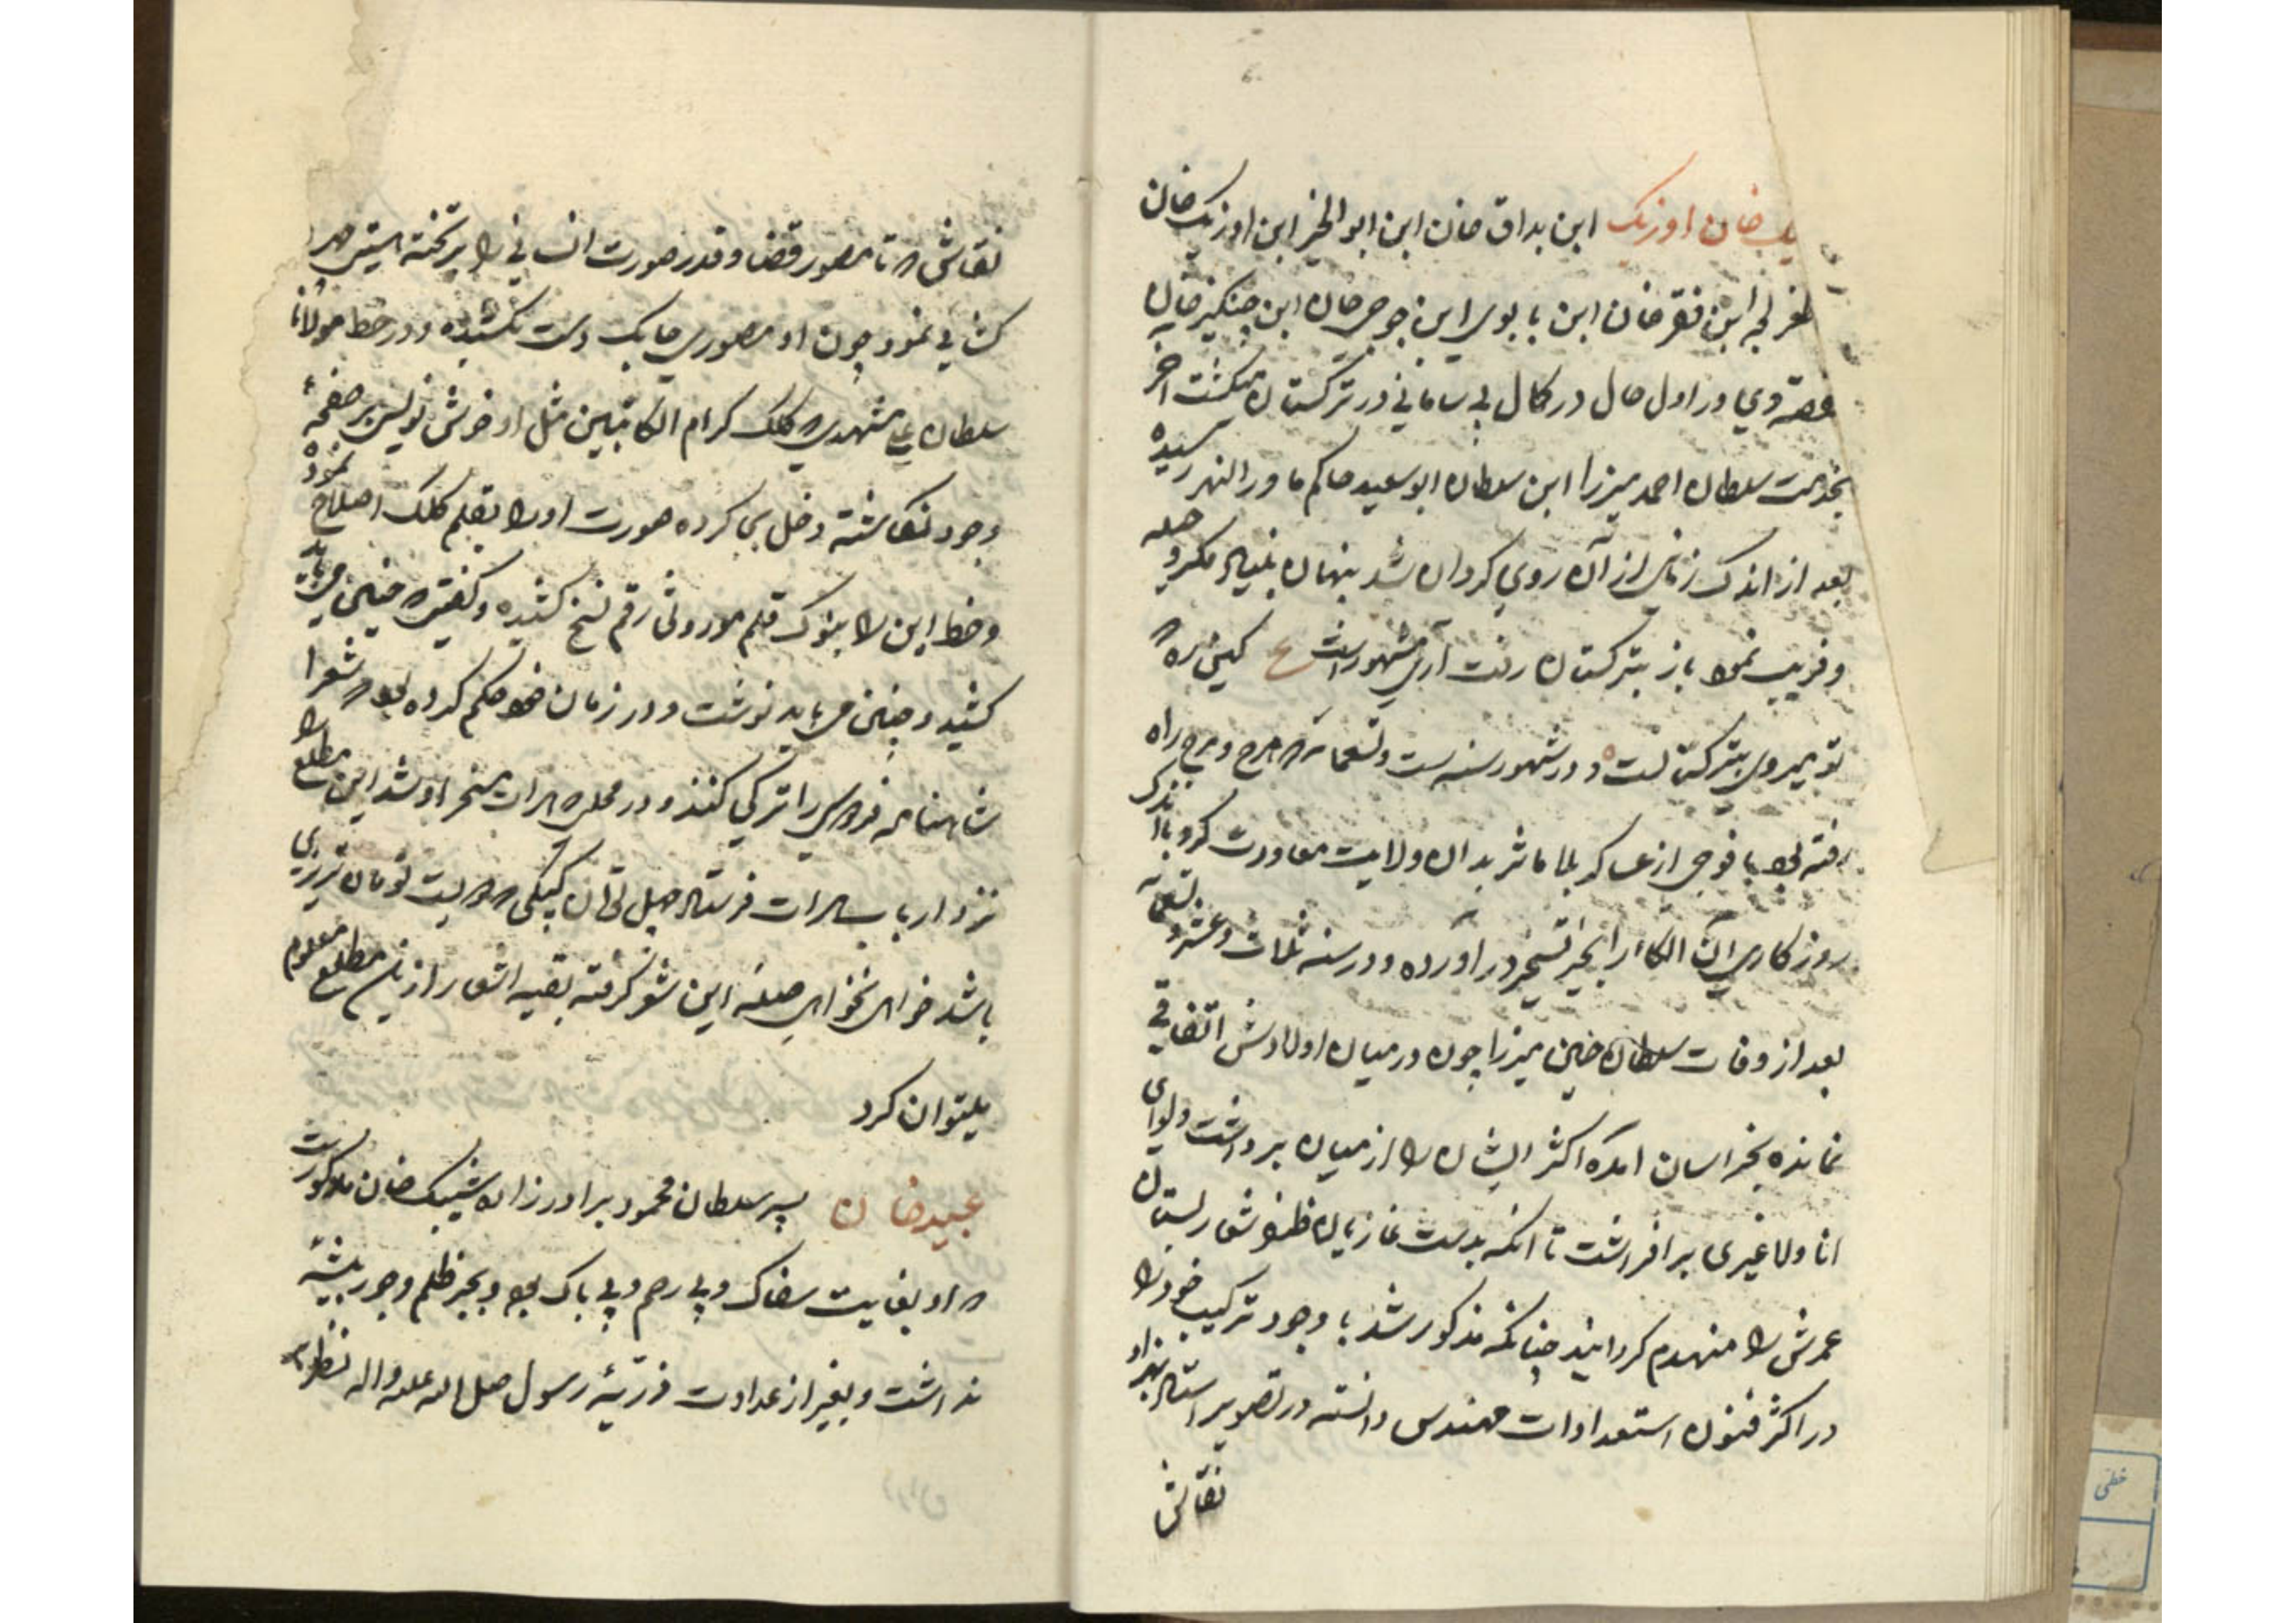 یک خان اوزبک ابن بداق خان ابن ابو الخیر ابن اوزبک خان
ابن فقر خان ابن با بوی ابن جوجی خان ابن چنگیز خان
القصه وی در اول حال در کمال بی سامانی در ترکستان میگشت آخر
بخدمت سلطان احمد میرزا ابن سلطان ابو سعید حاکم ماورالنهر رسیده
بعد از اندک زمانی از آن روی گردان شد بنهان بنیاد مکر و حیله
و فریب نموده باز بترکستان رفت آری مشهور است ع کین ره که
تو میروی بترکستانست و در شهور سنه ست و تسعمائه که هرج و مرج راه
رفته بود با فوجی از عساکر بلا ماثر بدان ولایت معاودت کرد باندک
روزگاری آن الکا را بحیز تسخیر در آورده و در سنه ثلاث و عشر و تسعمائه
بعد از وفات سلطان حسین میرزا چون در میان اولادش اتفاقی
نمانده بخراسان امده اکثر ایشان را از میان برداشت و لوای
انا ولا غیری بر افراشت تا انکه بدست غازیان ظفر شعار بستان
عمرش را منهدم گردانید چنانکه مذکور شد با وجود ترکیب خود را
در اکثر فنون استعدادات مهندس دانسته در تصویر استاد بهزاد
نقاش
نقاش که تا مصور قضا و قدر صورت انسانی را بر تخته هستی چهره
کشایی نمود چون او مصوری چابک دست نکشیده و در خط مولانا
سلطان علی مشهدی که کلک کرام الکاتبین مثل او خوش نویس بر صفحهٔ
وجود ننگاشته دخل بی کرده صورت او را بقلم کلک اصلاح نموده
و خط این را بنوک قلم رقم نسخ کشیده و گفتی که چنین می باید
کشید و چنین می باید نوشت و در زمان خود حکم کرده بود که شعرا
شاهنامه فردوسی را ترکی کنند و در محلی که هرات مسخر او شد این مطلع را
نزد ارباب هرات فرستاد چهل که دویست تومان تبریزی
باشد خواهی نخواهی صله این شعر گرفته بقیه اشعار از این مطلع معلوم
میتوان کرد
عبید خان پسر سلطان محمود برادر زاده شیبک خان مذکور است
که او بغایت سفاک و بی رحم و بی باک بود و بجز ظلم و جور پیشهٔ
نداشت و بغیر از عداوت ذریهٔ رسول صلی الله علیه و اله